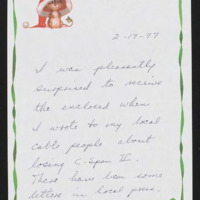 2-19-97
I was pleasantly
surprised to receive
the enclosed when
I wrote to my local
cable people about
losing C-Span II.
There have been some
letters in local press.